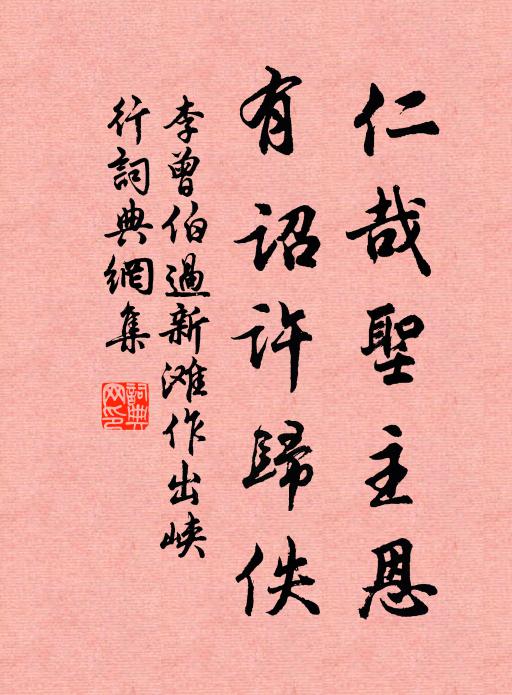 仁哉聖主恩
有詔許歸佚
李曾伯過新滩作出峡
行詞典網集
詞典
网印